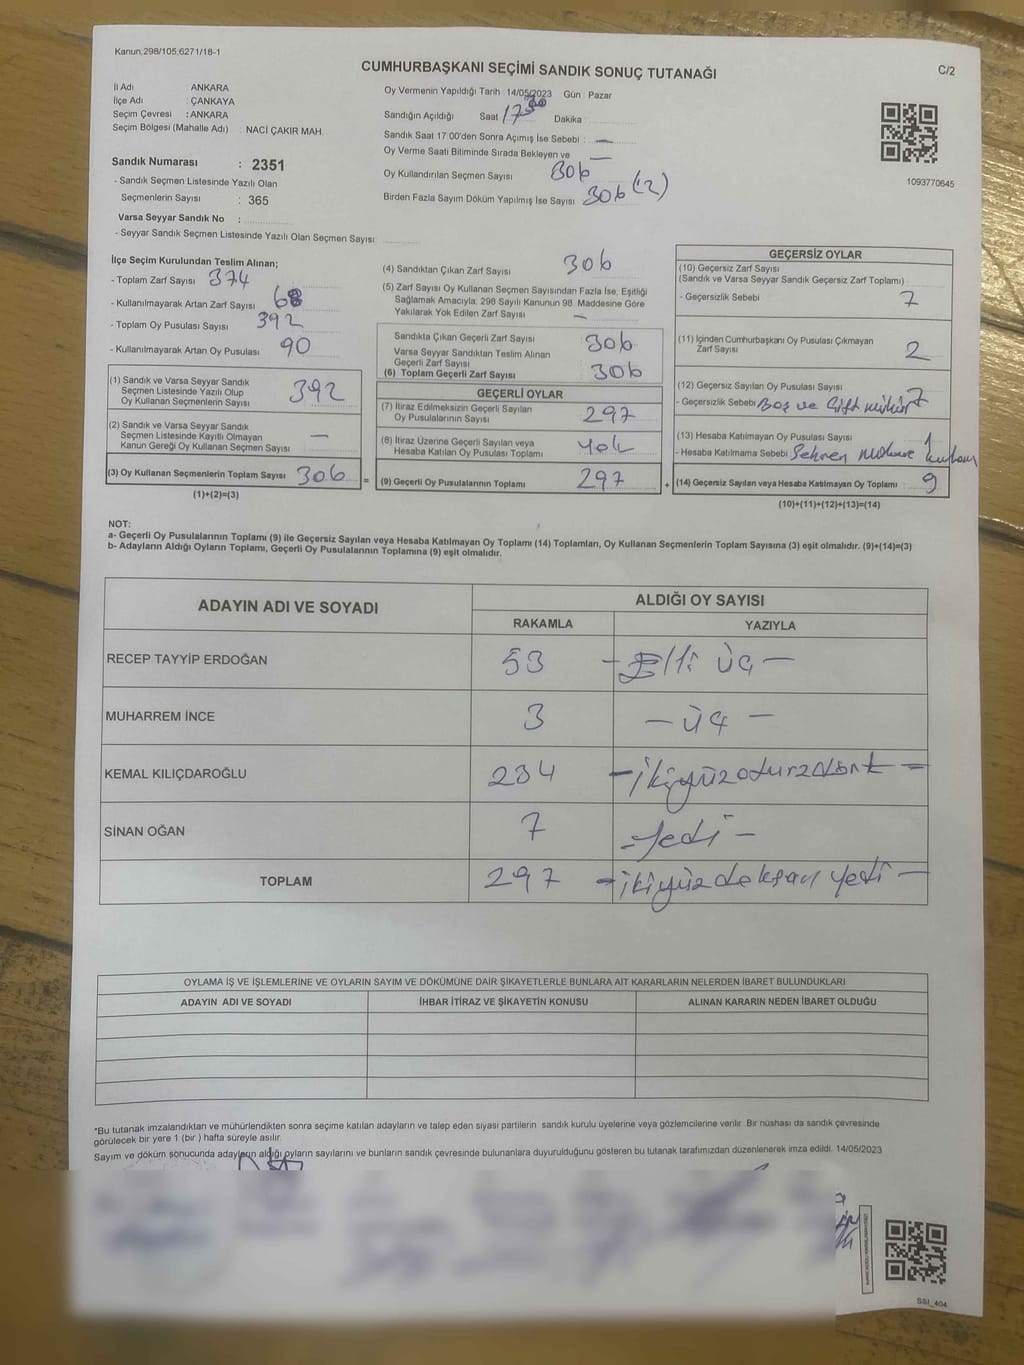 Kanun:298/105;6271/18-1
CUMHURBAŞKANI SEÇİMİ SANDIK SONUÇ TUTANAĞI
C/2
İl Adı ANKARA
İlçe Adı : ÇANKAYA
Seçim Çevresi : ANKARA
Seçim Bölgesi (Mahalle Adı) . NACİ ÇAKIR MAH.
Sandık Numarası : 2351
- Sandık Seçmen Listesinde Yazılı Olan
Seçmenlerin Sayısı : 365
Varsa Seyyar Sandık No :
- Seyyar Sandık Seçmen Listesinde Yazılı Olan Seçmen Sayısı:
Oy Vermenin Yapıldığı Tarih : 14/05/2023 Gün : Pazar
Sandığın Açıldığı Saat 17 30 Dakika :
Sandık Saat 17:00'den Sonra Açımış İse Sebebi : —
Oy Verme Saati Bitiminde Sırada Bekleyen ve —
Oy Kullandırılan Seçmen Sayısı 306
Birden Fazla Sayım Döküm Yapılmış İse Sayısı 306 (2)
1093770645
İlçe Seçim Kurulundan Teslim Alınan;
- Toplam Zarf Sayısı 374
- Kullanılmayarak Artan Zarf Sayısı 68
- Toplam Oy Pusulası Sayısı 392
- Kullanılmayarak Artan Oy Pusulası 90
(1) Sandık ve Varsa Seyyar Sandık
Seçmen Listesinde Yazılı Olup
Oy Kullanan Seçmenlerin Sayısı 392
(2) Sandık ve Varsa Seyyar Sandık
Seçmen Listesinde Kayıtlı Olmayan
Kanun Gereği Oy Kullanan Seçmen Sayısı —
(3) Oy Kullanan Seçmenlerin Toplam Sayısı 306
(1)+(2)=(3)
=
(4) Sandıktan Çıkan Zarf Sayısı 306
(5) Zarf Sayısı Oy Kullanan Seçmen Sayısından Fazla İse, Eşitliği
Sağlamak Amacıyla, 298 Sayılı Kanunun 98. Maddesine Göre
Yakılarak Yok Edilen Zarf Sayısı —
Sandıkta Çıkan Geçerli Zarf Sayısı 306
Varsa Seyyar Sandıktan Teslim Alınan
Geçerli Zarf Sayısı
(6) Toplam Geçerli Zarf Sayısı 306
GEÇERLİ OYLAR
(7) İtiraz Edilmeksizin Geçerli Sayılan
Oy Pusulalarının Sayısı 297
(8) İtiraz Üzerine Geçerli Sayılan veya
Hesaba Katılan Oy Pusulası Toplamı Yok
(9) Geçerli Oy Pusulalarının Toplamı 297
+
GEÇERSİZ OYLAR
(10) Geçersiz Zarf Sayısı
(Sandık ve Varsa Seyyar Sandık Geçersiz Zarf Toplamı)
- Geçersizlik Sebebi 7
(11) İçinden Cumhurbaşkanı Oy Pusulası Çıkmayan
Zarf Sayısı 2
(12) Geçersiz Sayılan Oy Pusulası Sayısı 7
- Geçersizlik Sebebi Boş ve Çift mühür
(13) Hesaba Katılmayan Oy Pusulası Sayısı 1
- Hesaba Katılmama Sebebi
(14) Geçersiz Sayılan veya Hesaba Katılmayan Oy Toplamı 9
(10)+(11)+(12)+(13)=(14)
NOT:
a- Geçerli Oy Pusulalarının Toplamı (9) ile Geçersiz Sayılan veya Hesaba Katılmayan Oy Toplamı (14) Toplamları, Oy Kullanan Seçmenlerin Toplam Sayısına (3) eşit olmalıdır. (9)+(14)=(3)
b- Adayların Aldığı Oyların Toplamı, Geçerli Oy Pusulalarının Toplamına (9) eşit olmalıdır.
ADAYIN ADI VE SOYADI ALDIĞI OY SAYISI
RAKAMLA YAZIYLA
RECEP TAYYİP ERDOĞAN 53 — Elli üç —
MUHARREM İNCE 3 — üç —
KEMAL KILIÇDAROĞLU 234 — ikiyüzoturzdört —
SİNAN OĞAN 7 — Yedi —
TOPLAM 297 — ikiyüzdoksan yedi —
OYLAMA İŞ VE İŞLEMLERİNE VE OYLARIN SAYIM VE DÖKÜMÜNE DAİR ŞİKAYETLERLE BUNLARA AİT KARARLARIN NELERDEN İBARET BULUNDUKLARI
ADAYIN ADI VE SOYADI İHBAR İTİRAZ VE ŞİKAYETİN KONUSU ALINAN KARARIN NEDEN İBARET OLDUĞU
*Bu tutanak imzalandıktan ve mühürlendikten sonra seçime katılan adayların ve talep eden siyasi partilerin sandık kurulu üyelerine veya gözlemcilerine verilir. Bir nüshası da sandık çevresinde
görülecek bir yere 1 (bir ) hafta süreyle asılır.
Sayım ve döküm sonucunda adayların aldığı oyların sayılarını ve bunların sandık çevresinde bulunanlara duyurulduğunu gösteren bu tutanak tarafımızdan düzenlenerek imza edildi. 14/05/2023
SSI_404